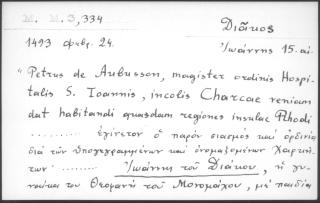 M. M. 3, 334
Διᾶκος
1493 φεβρ. 24.
Ἰωάννης 15. αἰ.
"Petrus de Aubusson, magister ordinis Hospi-
talis S. Ioannis, incolis Charcae veniam
dat habitandi quasdam regiones insulae Rhodi
.......... ἐγίνετον ὁ παρὸν σιασμὸς καὶ ὀρδινία
διὰ τῶν ὑπογεγραμμένων καὶ ὀνομαζομένων Χαρκη-
των ........ Ἰωάννης τοῦ Διάκου, ἡ γυ-
ναῖκα του Θεοφανὴ τοῦ Μονομάχου, μὲ παιδία